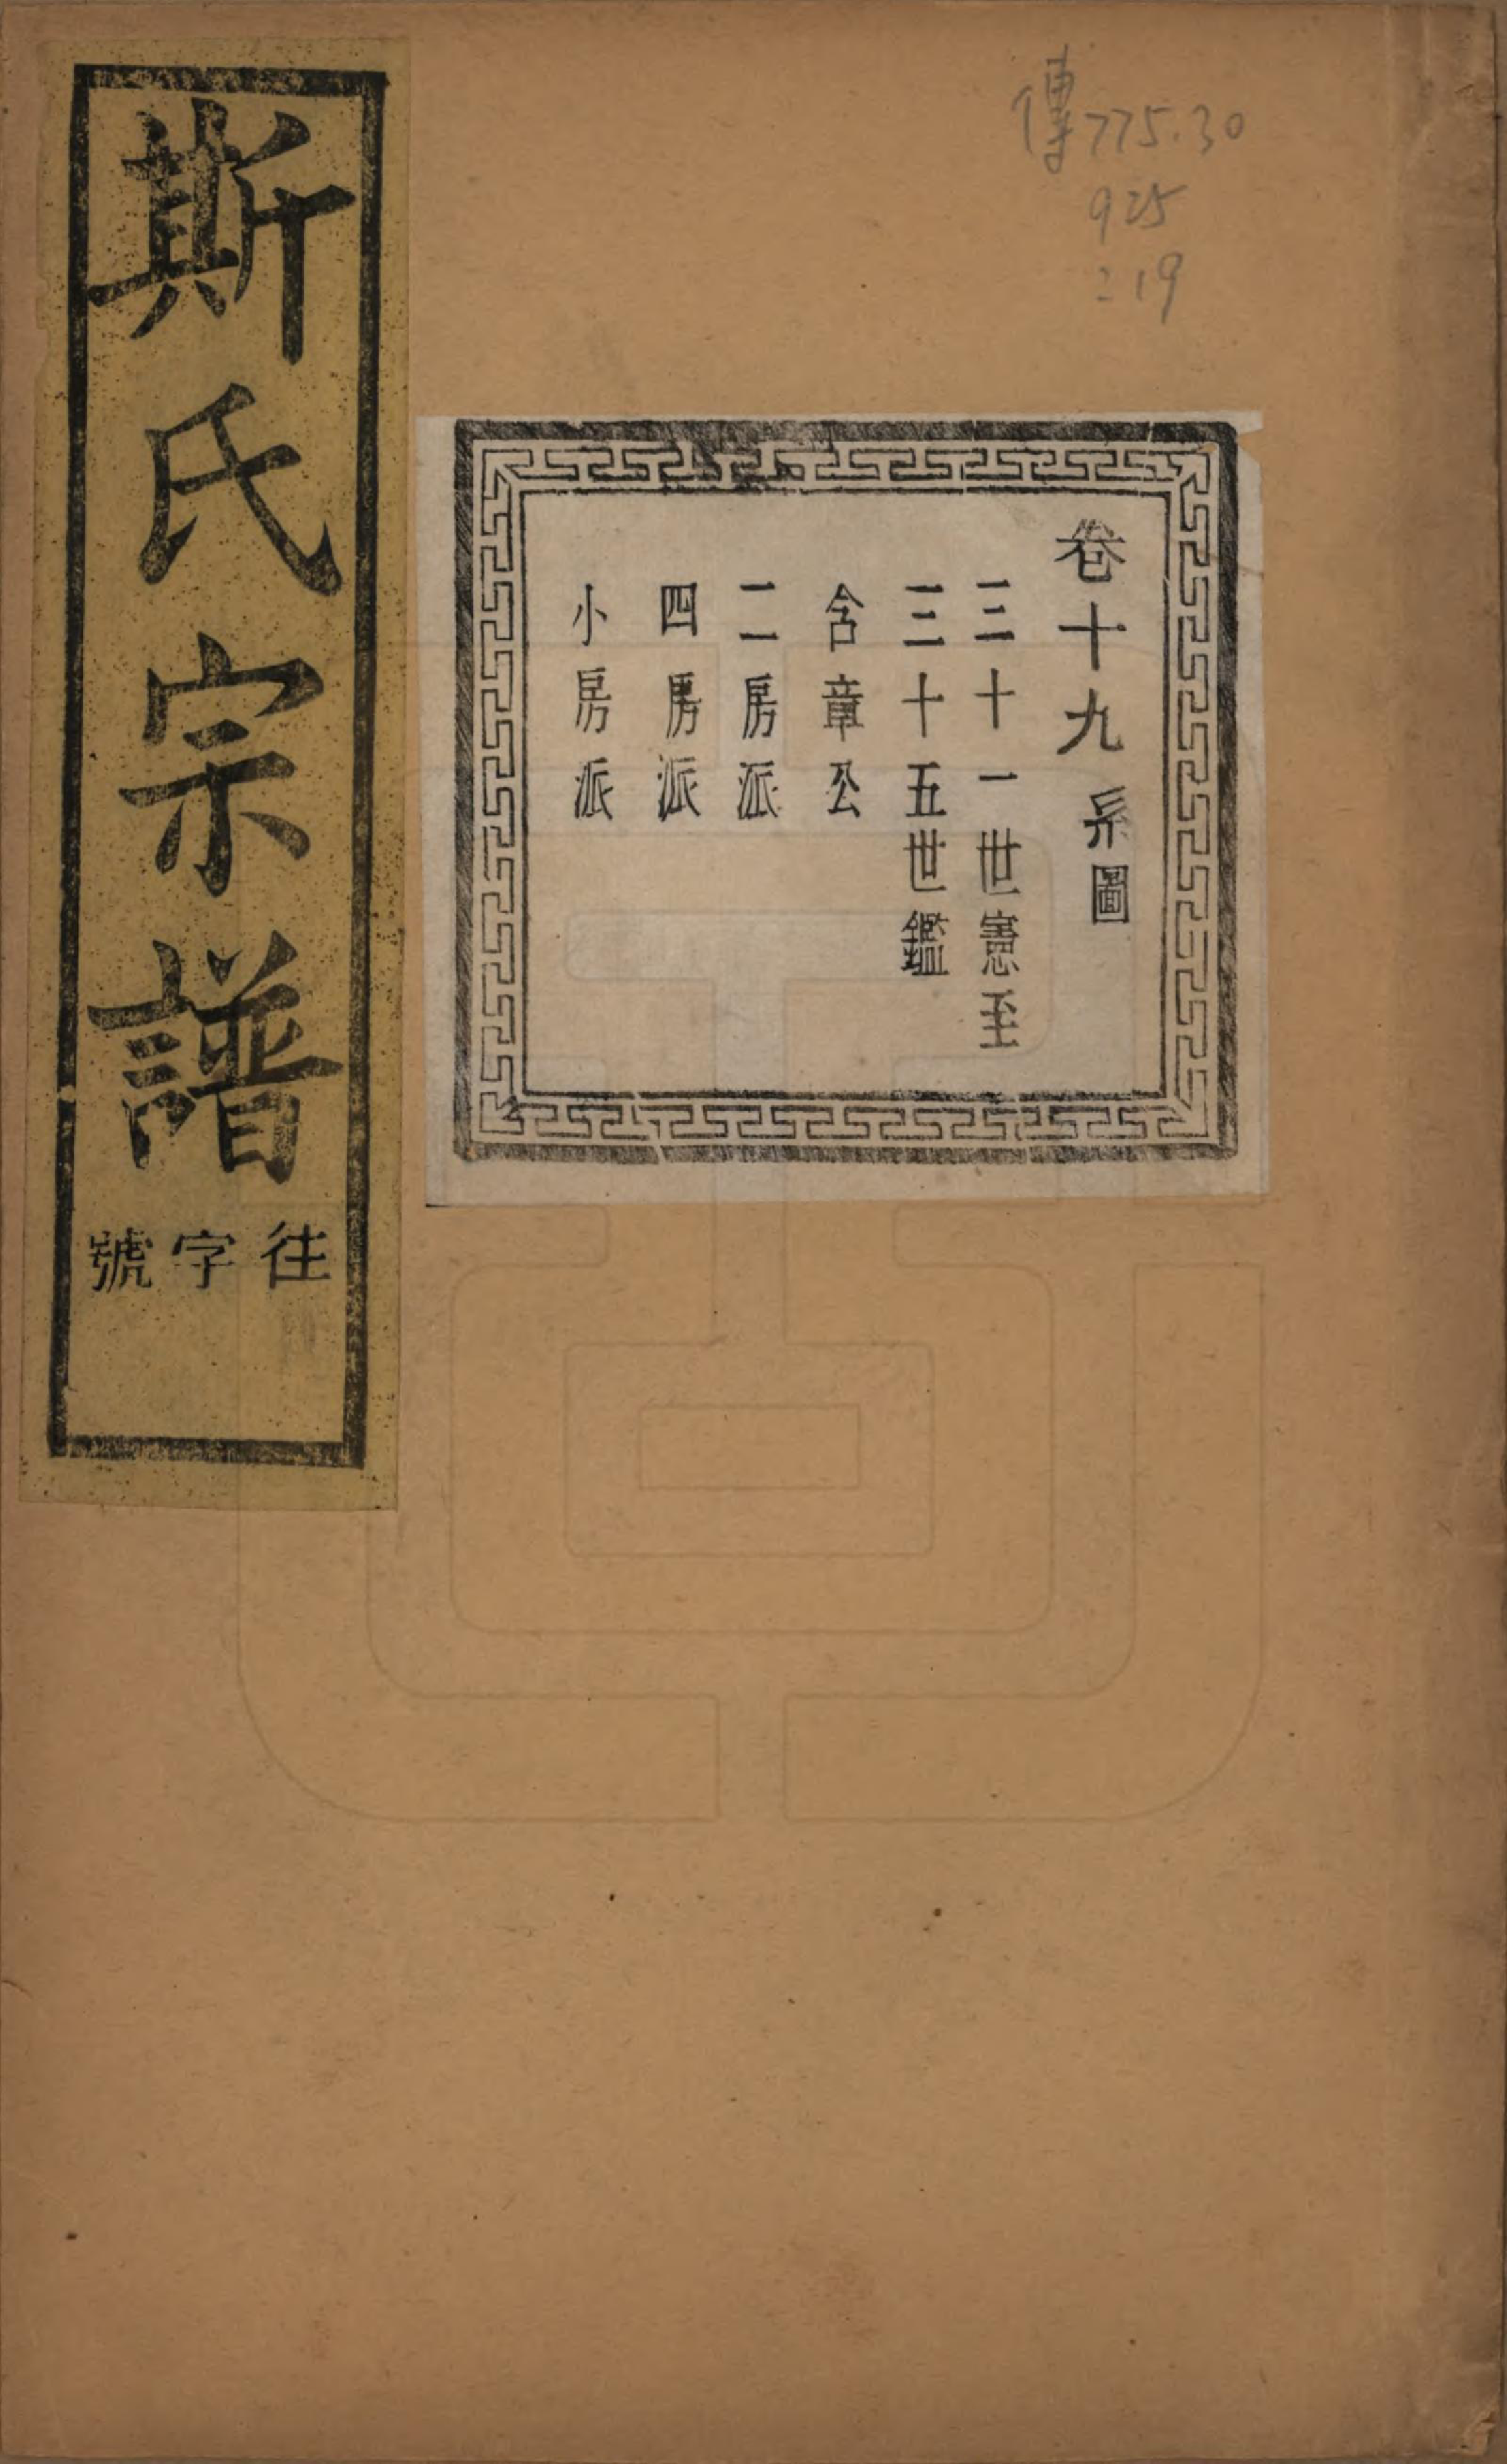 傳775.30
925
:19
卷十九 系圖
三十一世憲至
三十五世鑑
含章公
二房派
四房派
小房派
斯氏宗譜
往字號